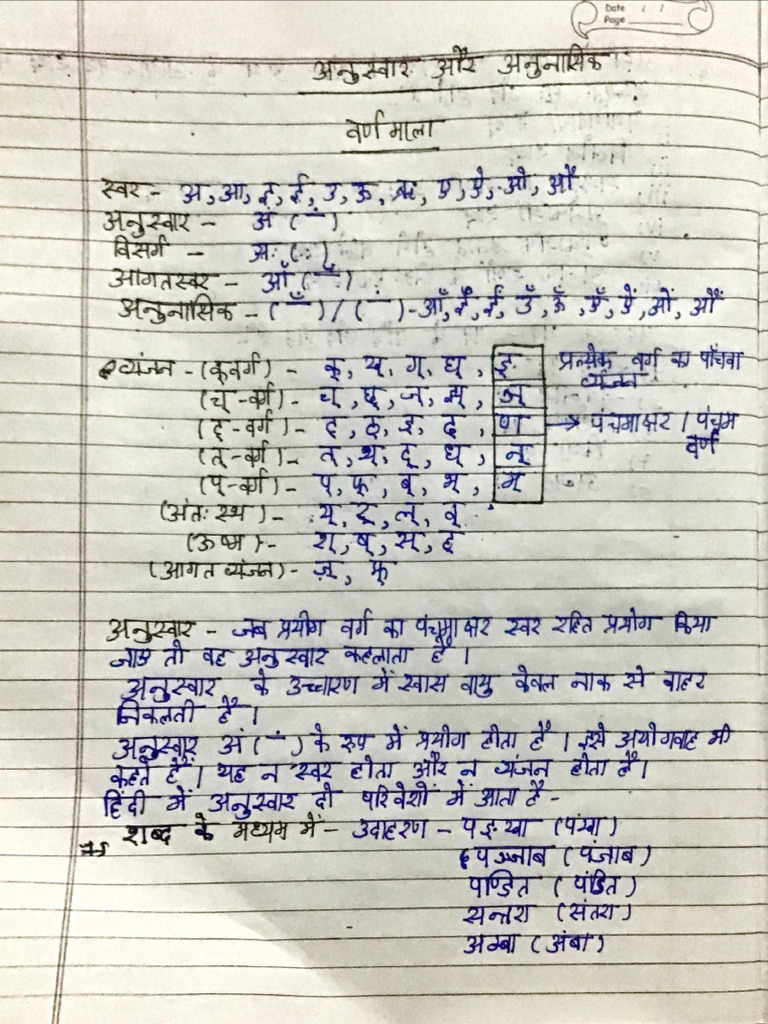 Date / /
Page
अनुस्वार और अनुनासिक
वर्ण माला
स्वर - अ, आ, इ, ई, उ, ऊ, ऋ, ए, ऐ, ओ, औ
अनुस्वार - अं (ं)
विसर्ग - अः (ः)
आगतस्वर - ऑ (ॉ)
अनुनासिक - (ँ) / (ं) - आँ, इँ, ईं, उँ, ऊँ, एँ, ऐं, ओं, औं
व्यंजन - (क् वर्ग) - क्, ख्, ग्, घ्, ङ् प्रत्येक वर्ग का पाँचवा
व्यंजन
(च् - वर्ग) - च्, छ्, ज्, झ्, ञ्
(ट् - वर्ग) - ट्, ठ्, ड्, ढ्, ण → पंचमाक्षर / पंचम
वर्ण
(त् - वर्ग) - त्, थ्, द्, ध्, न्
(प् - वर्ग) - प्, फ्, ब्, भ्, म्
(अंतः स्थ) - य्, र्, ल्, व्
(ऊष्म) - श्, ष्, स्, ह्
(आगत व्यंजन) - ज़्, फ़्
अनुस्वार - जब प्रयोग वर्ग का पंचमाक्षर स्वर रहित प्रयोग किया
जाए तो वह अनुस्वार कहलाता है।
अनुस्वार के उच्चारण में स्वास वायु केवल नाक से बाहर
निकलती है।
अनुस्वार अं (ं) के रूप में प्रयोग होता है। इसे अयोगवाह भी
कहते हैं। यह न स्वर होता और न व्यंजन होता है।
हिंदी में अनुस्वार दो परिवेशों में आता है -
शब्द के मध्यम में - उदाहरण - पङ्खा (पंखा)
पञ्जाब (पंजाब)
पण्डित (पंडित)
सन्तरा (संतरा)
अम्बा (अंबा)